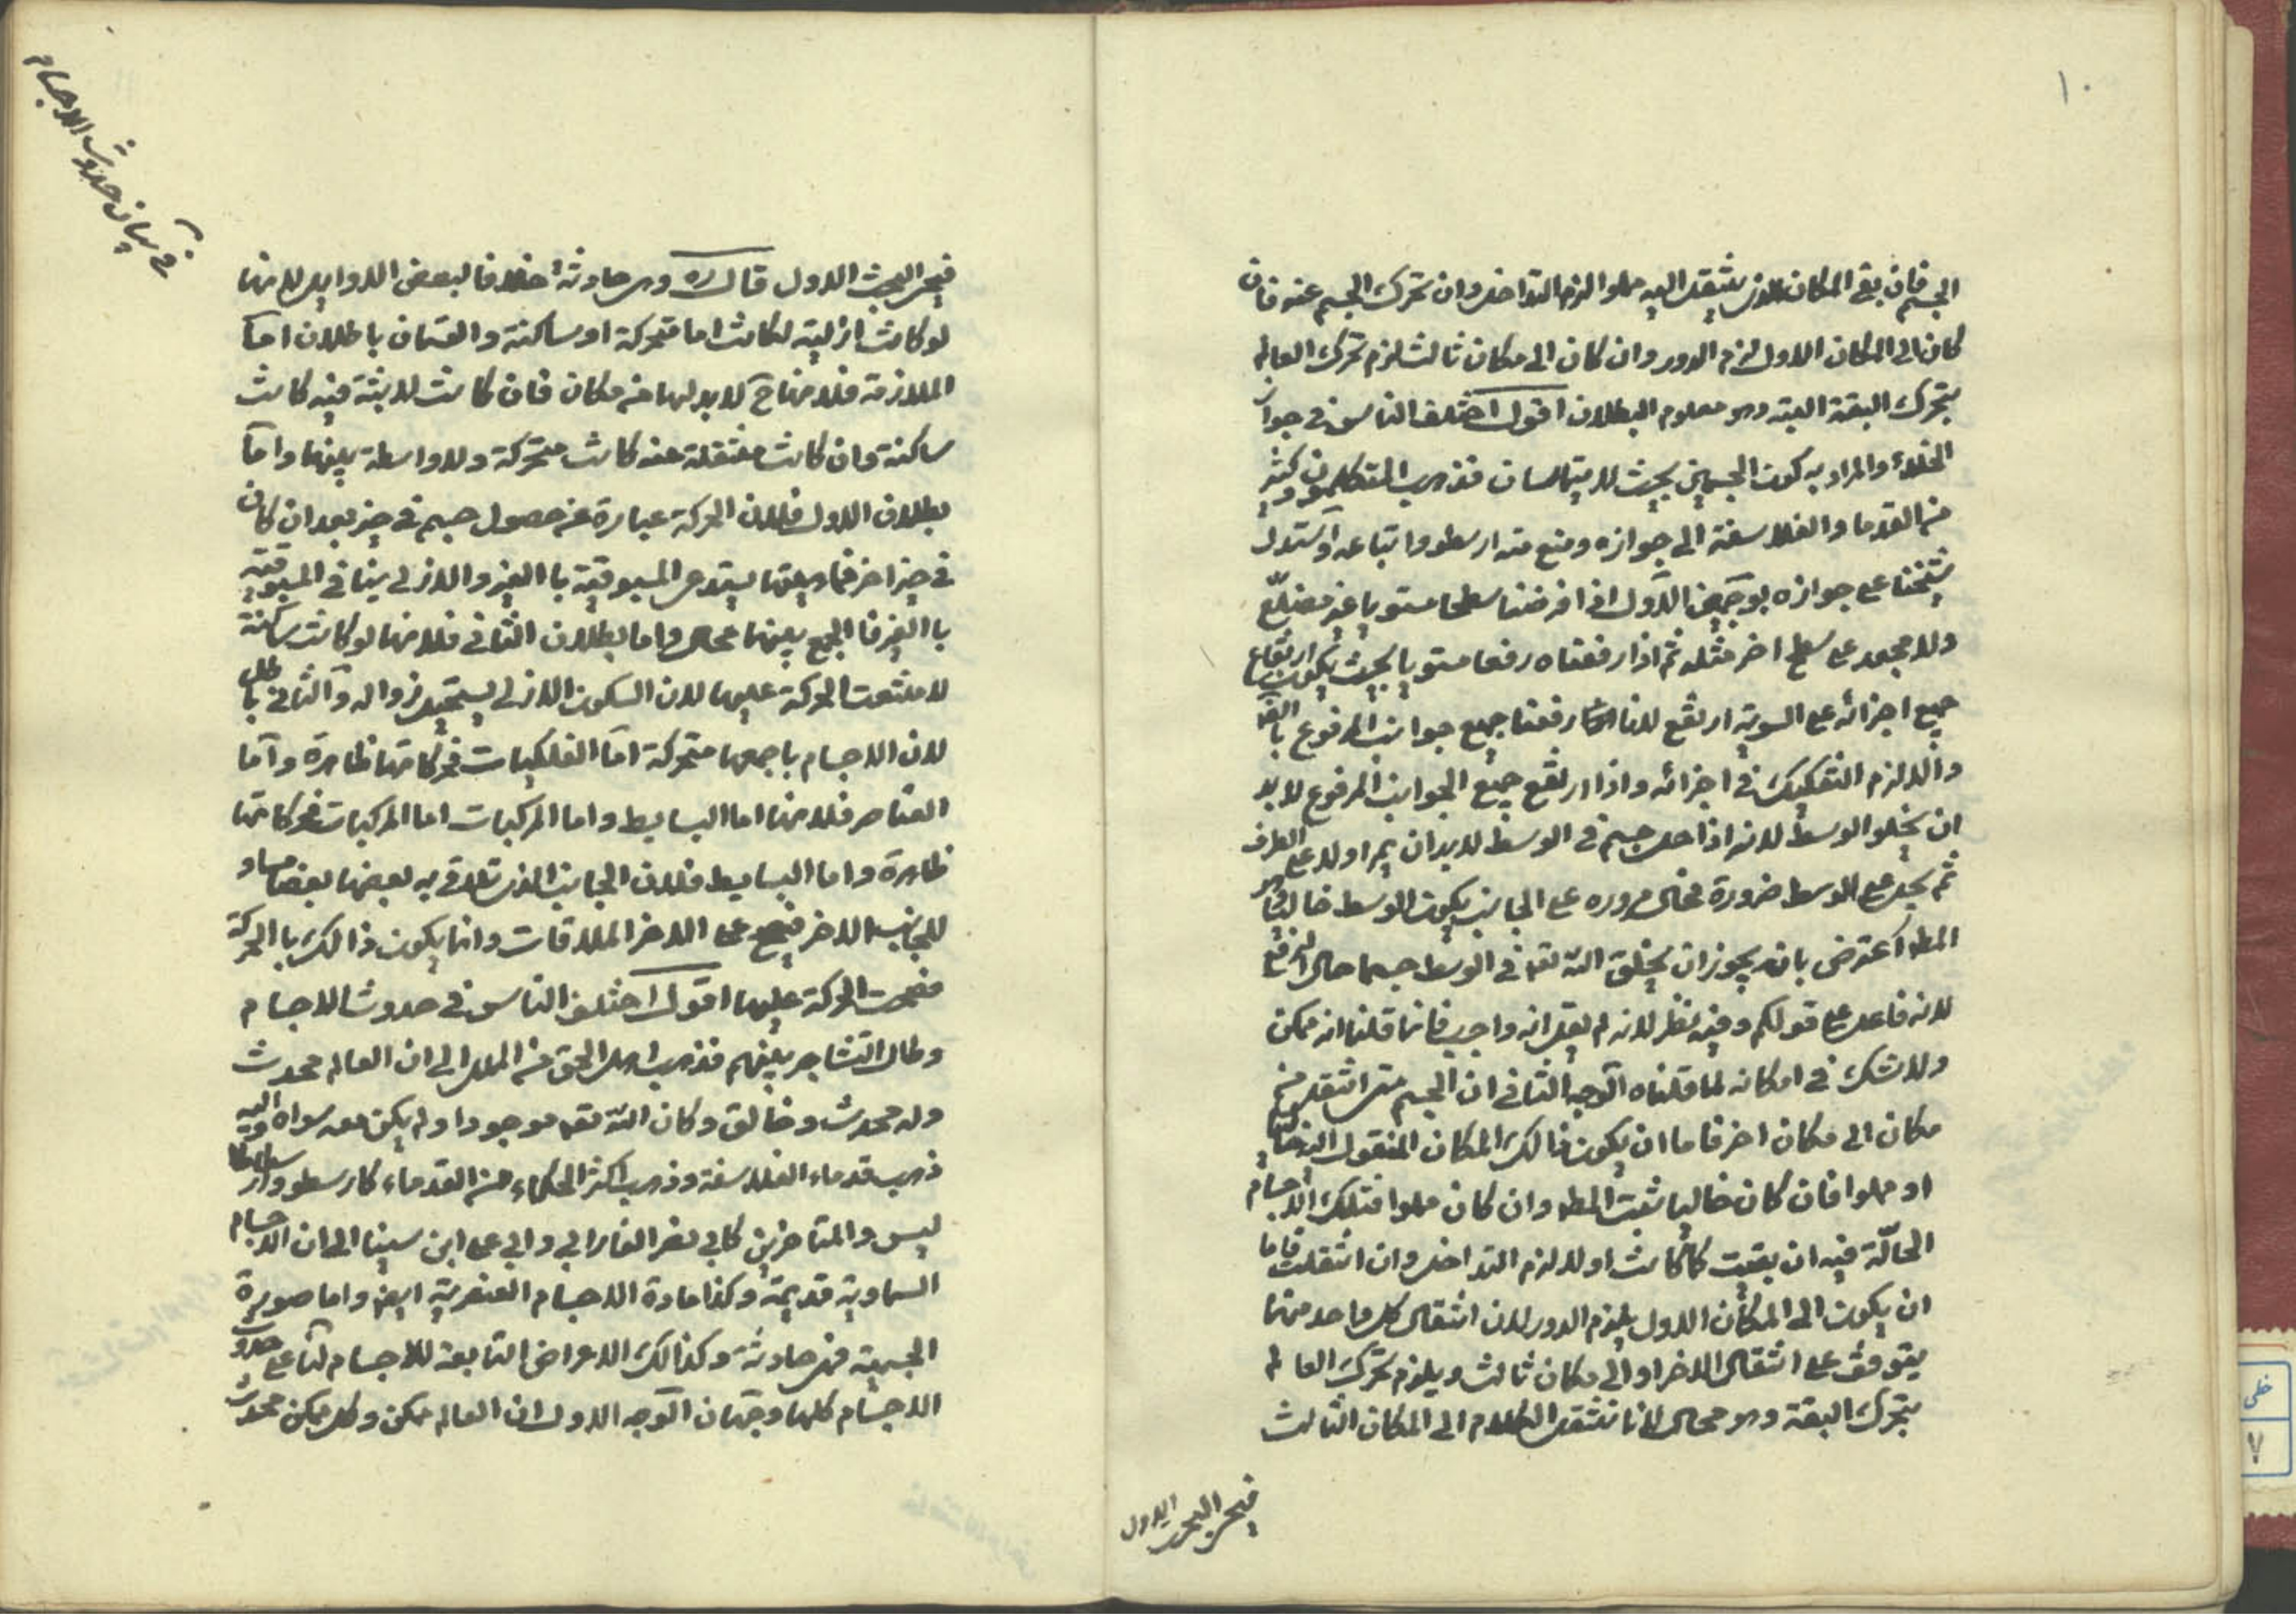 ١٠
الجسم فان بقي المكان الذي ينتقل اليه مملوا لزم التداخل وان تحرك الجسم عنه فان
كان الى المكان الاول لزم الدور وان كان الى مكان ثالث لزم تحرك العالم
بتحرك البقة البتة وهو معلوم البطلان اقول اختلف الناس في جواز
الخلاء والمراد به كون الجسمين بحيث لا يتماسان فذهب المتكلمون وكثير
من القدما والفلاسفة الى جوازه ومنع منه ارسطو واتباعه واستدل
شيخنا على جوازه بوجهين الاول اذا فرضنا سطحا مستويا غير مضلّع
ولا مجعد على سطح اخر مثله ثم اذا رفعناه رفعا مستويا بحيث يكون ارتفاع
جميع اجزائه على السوية ارتفع لانا رفعنا جميع جوانب المرفوع
والا لزم التفكيك في اجزائه واذا ارتفع جميع الجوانب المرفوع لا بد
ان يخلو الوسط لانه اذا حل جسم في الوسط لا بد ان يمر اولا على الطرف
ثم يحل على الوسط ضرورة فحال مروره على الجانب يكون الوسط خاليا وهو
المط اعترض بانه يجوز ان يخلق الله تعه في الوسط جسما حال الرفع
لانه فاعل على قولكم وفيه نظر لانه لم يقل انه واجب فانما قلنا انه ممكن
ولا شك في امكانه لما قلناه الوجه الثاني ان الجسم متى انتقل من
مكان الى مكان اخر فاما ان يكون ذالك المكان المنقول اليه خاليا
او مملوا فان كان خاليا ثبت المط وان كان مملوا فتلك الاجسام
الحالّة فيه ان بقيت كما كانت اولا لزم التداخل وان انتقلت فاما
ان يكون الى المكان الاول يلزم الدور لان انتقال كل واحد منهما
يتوقف على انتقال الاخر او الى مكان ثالث ويلزم تحرك العالم
بتحرك البقة وهو محال لانا ننقل الكلام الى المكان الثالث
فيجئ البحث الاول
في بيان حدوث الاجسام
فيجئ البحث الاول قال ره وهي حادثة خلافا لبعض الاوايل لانها
لو كانت ازلية لكانت اما متحركة او ساكنة والقسمان باطلان اما
الملازمة فلانها ح لا بد لها من مكان فان كانت لابثة فيه كانت
ساكنة وان كانت منتقلة عنه كانت متحركة ولا واسطة بينهما واما
بطلان الاول فلان الحركة عبارة عن حصول جسم في حيز بعد ان كان
في حيز اخر فماهيتها يستدعي المسبوقية باالغير والازلي ينافي المسبوقية
باالغير فالجمع بينهما محال واما بطلان الثاني فلانها لو كانت ساكنة
لامتنعت الحركة عليها لان السكون الازلي يستحيل زواله والثاني باطل
لان الاجسام باجمعها متحركة اما الفلكيات فحركاتها ظاهرة واما
العناصر فلانها اما البسايط واما المركبات اما المركبات فحركاتها
ظاهرة واما البسايط فلان الجانب الذي تلاقي به بعضها بعضا مساو
للجانب الاخر فيصح على الاخر الملاقات وانما يكون ذالك باالحركة
فصحت الحركة عليها اقول اختلف الناس في حدوث الاجسام
وطال التشاجر بينهم فذهب اهل الحق من الملل الى ان العالم محدث
وله محدث وخالق وكان الله تعه موجودا ولم يكن معه سواه واليه
ذهب قدماء الفلاسفة وذهب اكثر الحكماء من القدماء كارسطو
ليس والمتاخرين كابي نصر الفارابي وابي علي ابن سينا الى ان الاجسام
السماوية قديمة وكذا مادة الاجسام العنصرية ايض واما صورة
الجسمية فهي حادثة وكذالك الاعراض التابعة للاجسام لنا على حدوث
الاجسام كلها وجهان الوجه الاول ان العالم ممكن وكل ممكن محدث
خطى
٧